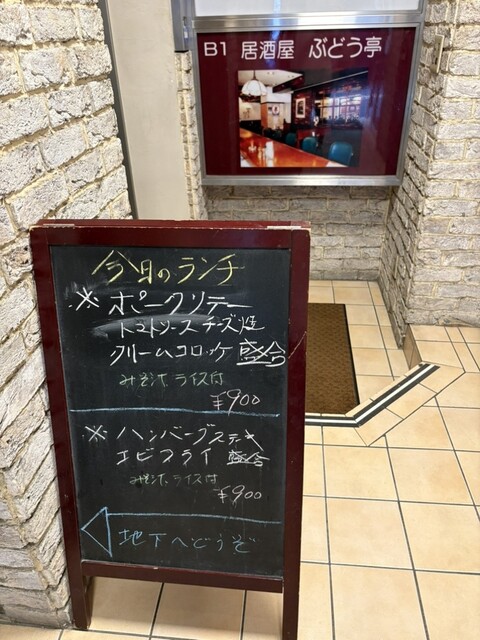 B1 居酒屋 ぶどう亭
今日のランチ
※ ポークソテー
トマトソースチーズ焼
クリームコロッケ 盛合
みそ汁、ライス付
¥900
※ ハンバーグステーキ
エビフライ 盛合
みそ汁、ライス付
¥900
地下へどうぞ